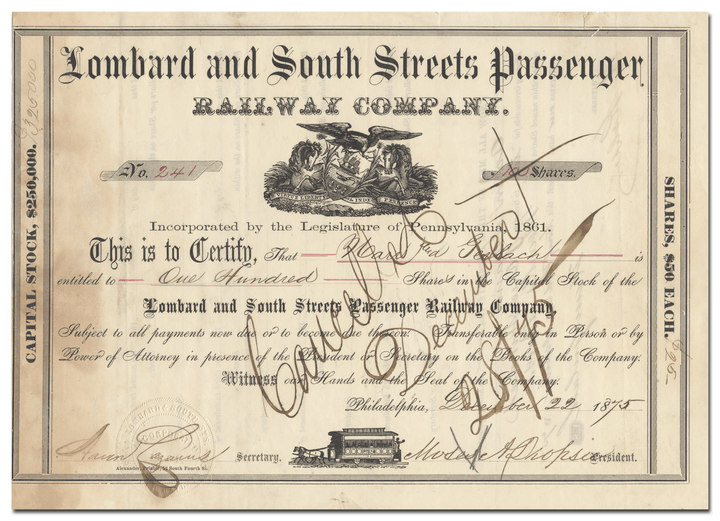 Lombard and South Streets Passenger
RAILWAY COMPANY.
No. 241
100 Shares.
VIRTUE LIBERTY & INDEPENDENCE
Incorporated by the Legislature of Pennsylvania, 1861.
This is to Certify, That
is
entitled to One Hundred Shares in the Capital Stock of the
Lombard and South Streets Passenger Railway Company,
Subject to all payments now due or to become due thereon. Transferable only in Person or by
Power of Attorney in presence of the President or Secretary on the Books of the Company.
Witness our Hands and the Seal of the Company.
Philadelphia, December 22 1875
Secretary.
Moses A Dropsie President.
CAPITAL STOCK, $250,000.
SHARES, $50 EACH.
$25
Cancelled
December